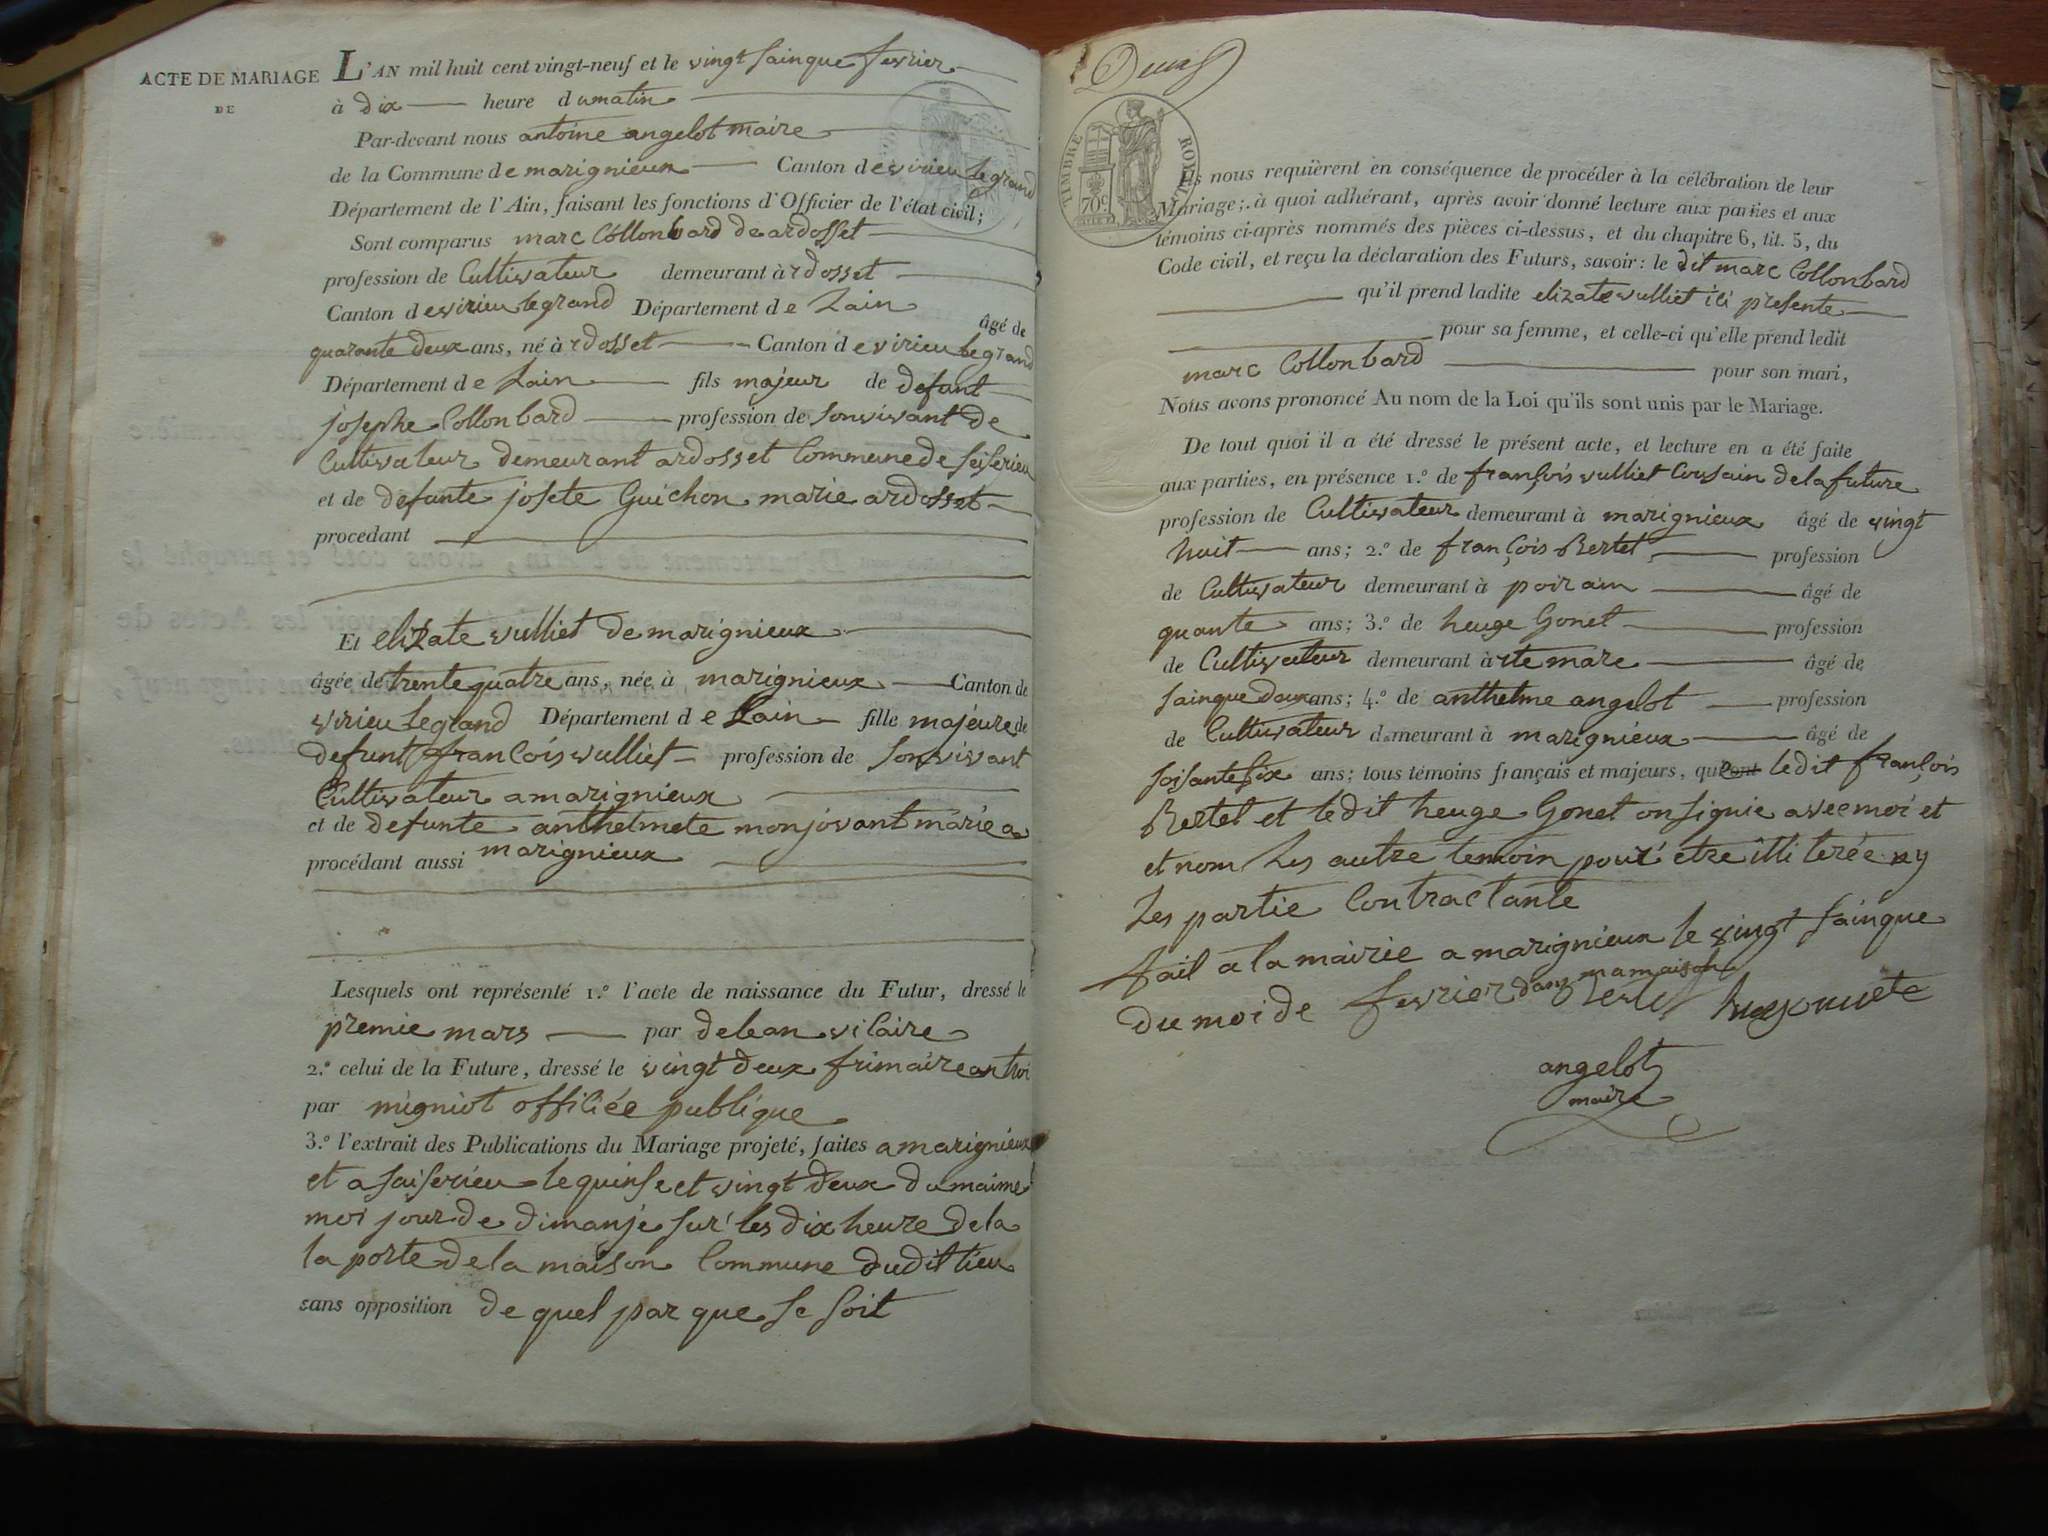 ACTE DE MARIAGE
DE
L'AN mil huit cent vingt-neuf et le vingt sainque fevrier
à dix heure dumatin
Par-devant nous antoine angelot maire
de la Commune de marignieux Canton de virieu legrand
Département de l'Ain, faisant les fonctions d'Officier de l'état civil;
Sont comparus marc Collonbard de ardosset
profession de Cultivateur demeurant à rdosset
Canton de virieu legrand Département de Lain
âgé de
quarante deux ans, né à rdosset Canton de virieu legrand
Département de Lain fils majeur de defant
josephe Collonbard profession de sonvivant de
Cultivateur demeurant ardosset Commune de seiserieu
et de defante josete Guichon marie ardosset
procedant
Et elizate vulliet de marignieux
âgée de trente quatre ans, née à marignieux Canton de
virieu legrand Département de Lain fille majeure de
defunt francois vulliet profession de sonvivant
Cultivateur a marignieux
et de defunte anthelmete monjovant marie a
procédant aussi marignieux
Lesquels ont représenté 1.º l'acte de naissance du Futur, dressé le
premie mars par delean vilaire
2.º celui de la Future, dressé le vingt deux frimaire an troi
par migniot offiliée publique
3.º l'extrait des Publications du Mariage projeté, faites a marignieux
et a saiserieu le quinse et vingt deux du maime
moi jour de dimanje sur les dix heure de la
la porte de la maison Commune dudit lieu
sans opposition de quel par que se soit
Deux
TIMBRE ROYAL
70c
Ils nous requièrent en conséquence de procéder à la célébration de leur
Mariage; à quoi adhérant, après avoir donné lecture aux parties et aux
témoins ci-après nommés des pièces ci-dessus, et du chapitre 6, tit. 5, du
Code civil, et reçu la déclaration des Futurs, savoir: le dit marc Collonbard
qu'il prend ladite elizate vulliet ili presente
pour sa femme, et celle-ci qu'elle prend ledit
marc Collonbard pour son mari,
Nous avons prononcé Au nom de la Loi qu'ils sont unis par le Mariage.
De tout quoi il a été dressé le présent acte, et lecture en a été faite
aux parties, en présence 1.º de françois vulliet Cousain de la future
profession de Cultivateur demeurant à marignieux âgé de vingt
huit ans; 2.º de françois Bertet profession
de Cultivateur demeurant à poirain âgé de
quante ans; 3.º de heuge Gonet profession
de Cultivateur demeurant à rtemare âgé de
sainque ans; 4.º de anthelme angelot profession
de Cultivateur demeurant à marignieux âgé de
soisante six ans; tous témoins français et majeurs, qui ledit françois
Bertet et ledit heuge Gonet on signie avec moi et
et nom les autre temoin pour etre illiterée ny
les partie Contractante
fait a la mairie a marignieux le vingt sainque
du moi de fevrier dans ma maison
angelot
maire